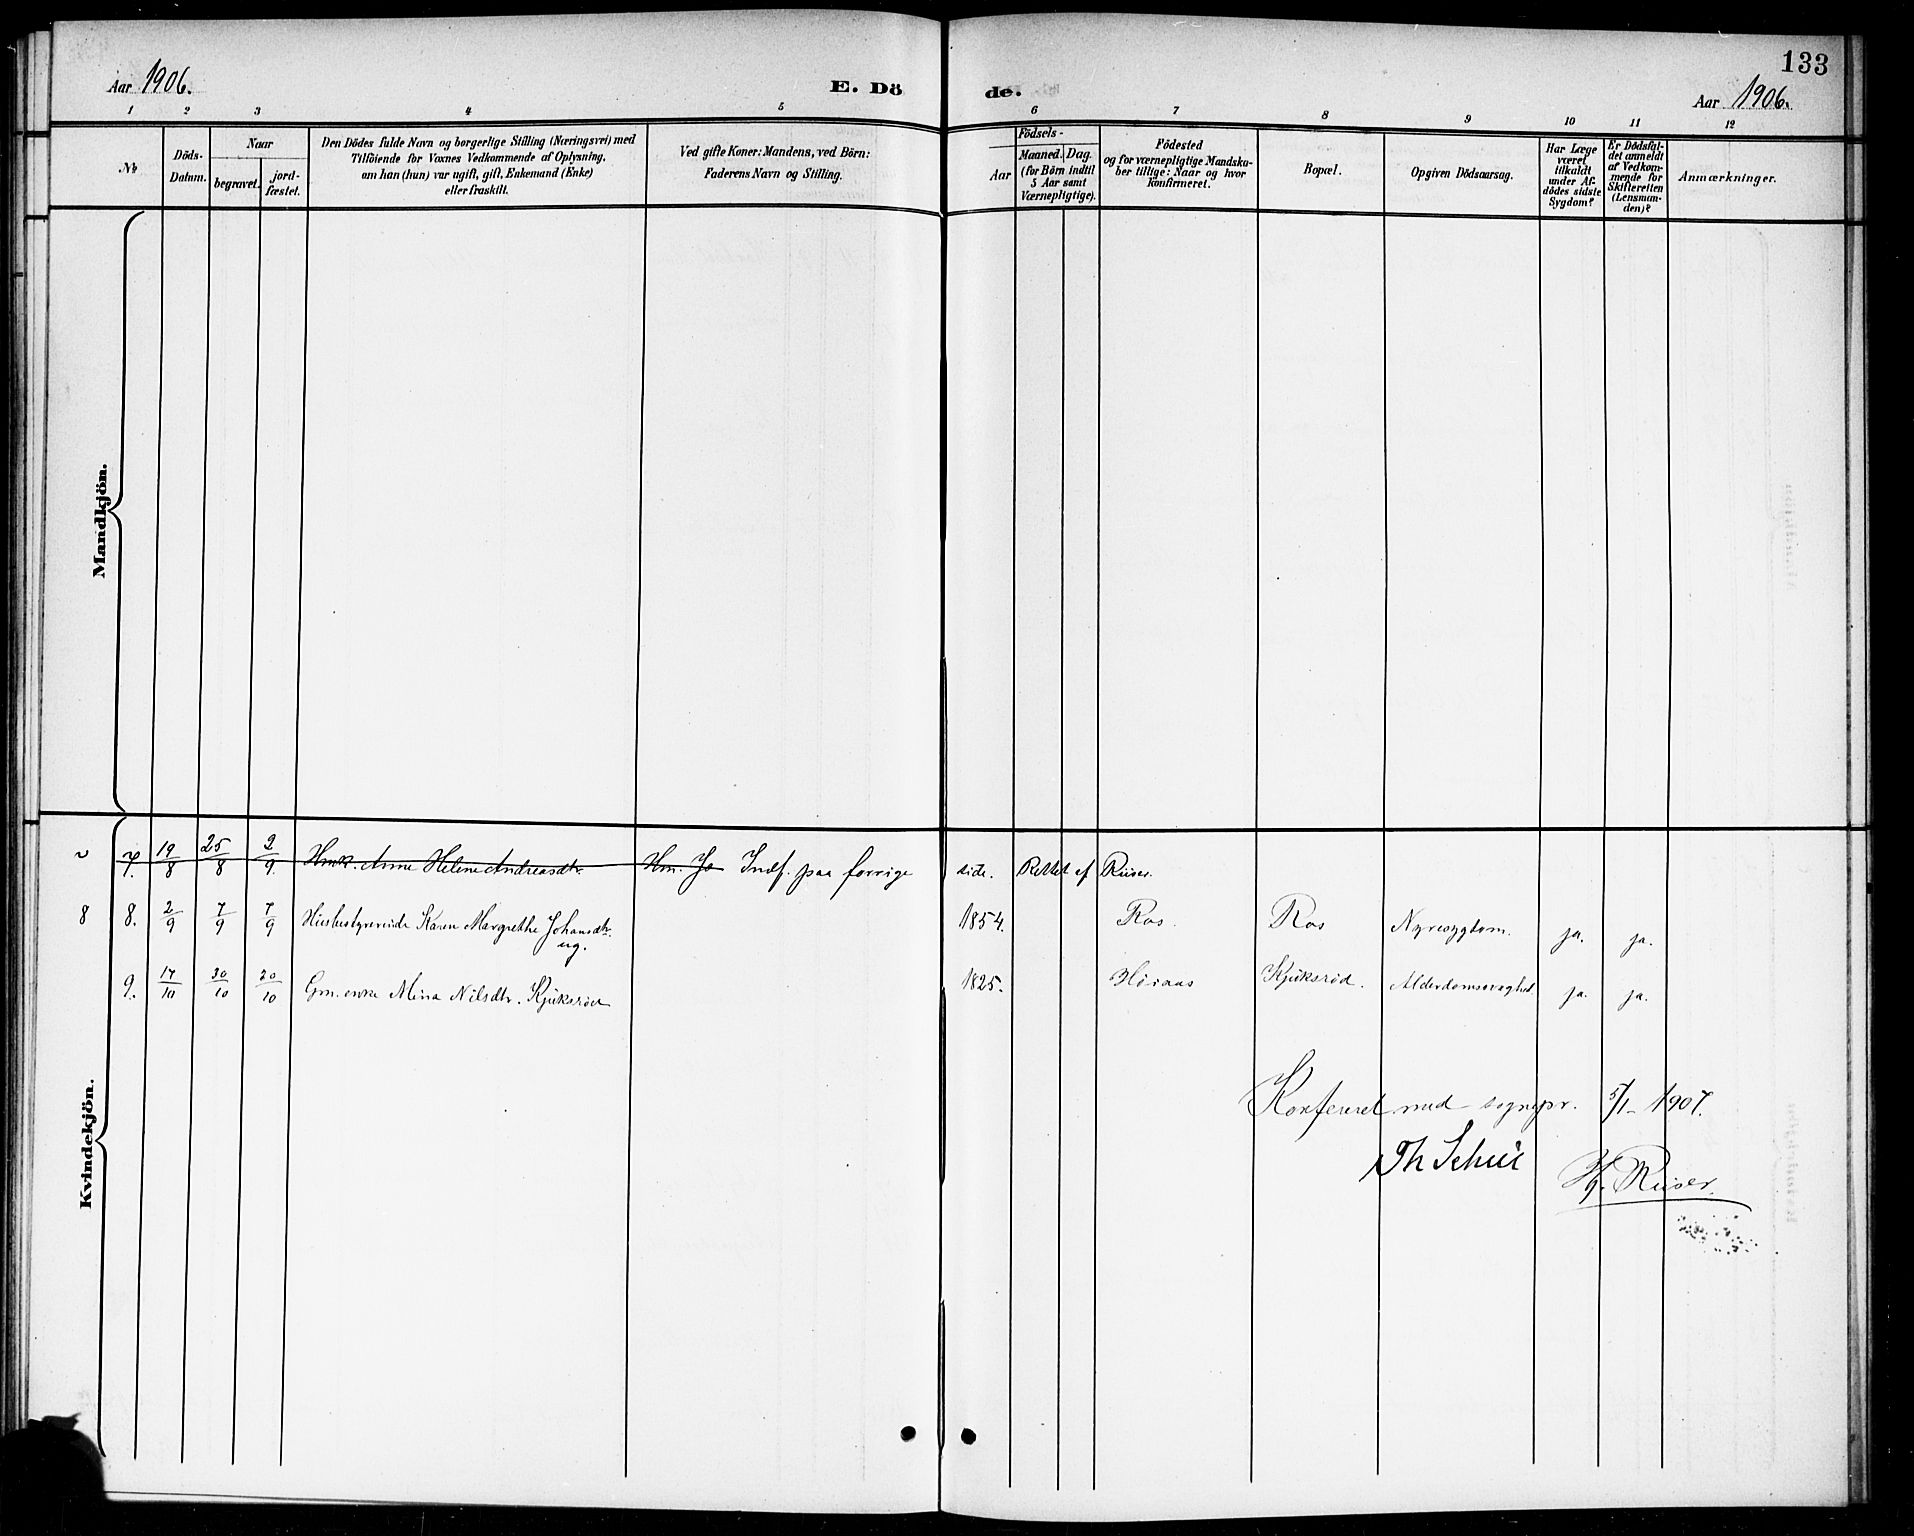 133
Aar 1906.
E. Dö de.
Aar 1906.
1 2 3 4 5 6 7 8 9 10 11 12
No
Döds-
Datum.
Naar
begravet.
jord-
fæstet.
Den Dödes fulde Navn og borgerlige Stilling (Næringsvei) med
Tilföiende for Voxnes Vedkommende af Oplysning,
om han (hun) var ugift, gift, Enkemand (Enke)
eller fraskilt.
Ved gifte Koner: Mandens, ved Börn:
Faderens Navn og Stilling.
Födsels-
Aar
Maaned. Dag.
(for Börn indtil
5 Aar samt
Værnepligtige).
Födested
og for værnepligtige Mandska-
ber tillige: Naar og hvor
konfirmeret.
Bopæl.
Opgiven Dödsaarsag.
Har Læge
været
tilkaldt
under Af-
dödes sidste
Sygdom?
Er Dödsfal-
det anmeldt
af Vedkom-
mende for
Skifteretten
(Lensman-
den)?
Anmærkninger.
Mandkjön.
7. 19/8 25/8 2/9 Hmk. Anne Helene Andreasdtr. Hm. Jo Indf. paa forrige side. Rettet af Riiser.
8 8. 2/9 7/9 7/9 Husbestyrerinde Karen Margrethe Johansdtr. 1854. Ros. Ros Nyresygdom. ja. ja.
ug.
9. 17/10 30/10 20/10 Gm. enke Mina Nilsdtr. Kjuksrød 1825. Høiaas Kjuksrød. Alderdomssvaghed. ja. ja.
Kvindekjön.
Konfereret med sognepr. 5/1- 1907.
Th Schui
Hj. Riiser.